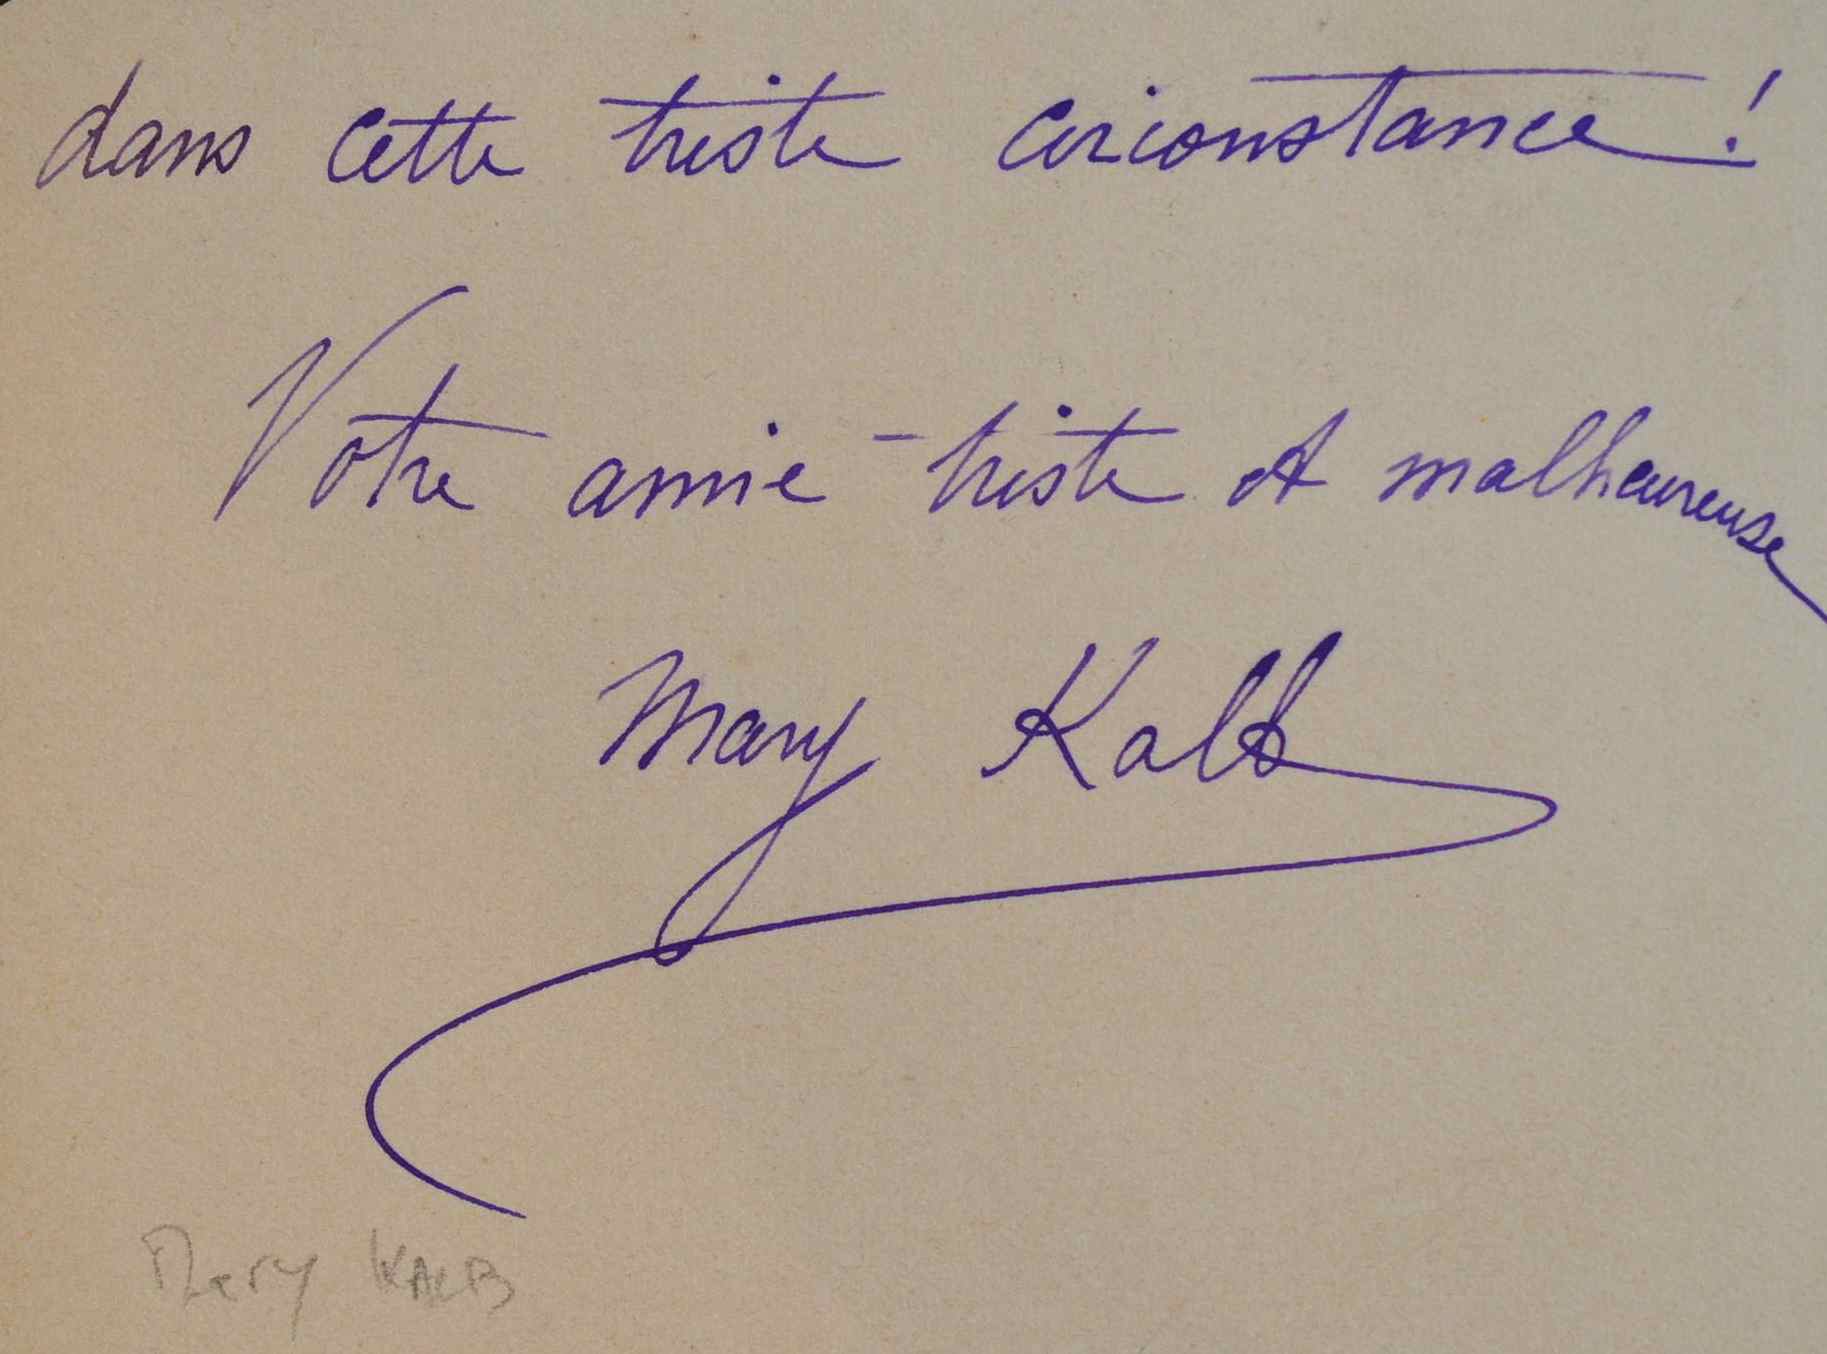 dans cette triste circonstance !
Votre amie - triste et malheureuse
Mary Kalb
Mery KALB